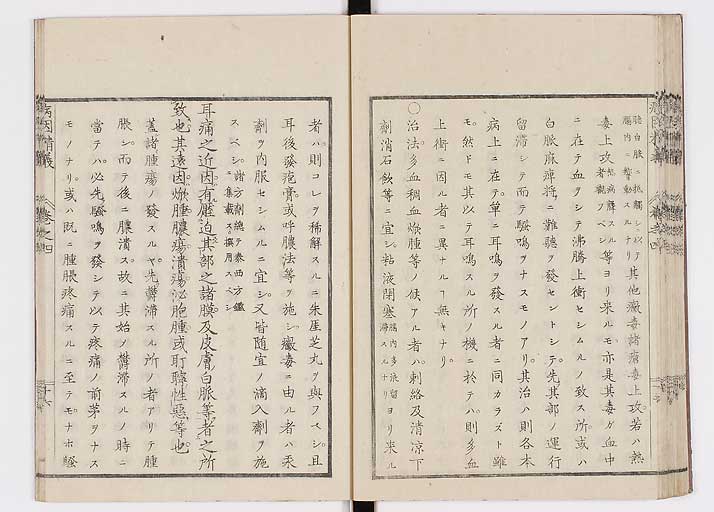 脳白脈ニ抵觸シ以テ其他黴毒諸瘡毒上攻若ハ熱
腸内ニ撃動スルナリ
毒上攻者觀ツベシ等ヨリ来ルモ亦是其毒ガ血中
ニ在テ血ヲシテ沸騰上衝セシムルノ致ス所或ハ
白脈麻痺将ニ難聽ヲ發セントシテ先其部ノ運行
留滞シテ而テ騒鳴ヲナスモノアリ其治ハ則各本
病上ニ在テ單ニ耳鳴ヲ發スル者ニ同カラズト雖
モ然ドモ其以テ耳鳴スル所ノ機ニ於テハ則多血
上衝ニ因ル者ニ異ナルヿ無キナリ
〇治法多血稠血焮腫等ノ候アル者ハ刺絡及清凉下
劑消石飲等ニ宜シ粘液閉塞 滞スルナリヨリ来ル
者ハ則コレヲ稀解スルニ朱芝丸ヲ與フベシ且
耳後發疱膏或呼膿法等ヲ施シ黴毒ニ由ル者ハ汞
劑ヲ内服セシムルニ宜シ又皆随宜ノ滴入劑ヲ施
スベシ諸方劑總テ泰西方鑑ニ集載ス撰用スベシ
耳痛之近因有壓迫其部之諸膜及皮膚白脈等者之所
致也其遠因焮腫膿瘍潰瘍泌胞腫或耵聹性惡等也
蓋諸腫瘍ノ發スルヤ先鬱滞スル所ノ者アリテ腫
脹シ而テ後ニ膿潰ス故ニ其始ノ鬱滞スルノ時ニ
當テハ必先騒鳴ヲ發シテ以テ疼痛ノ前茅ヲナス
モノナリ或ハ既ニ腫脹疼痛スルニ至テモナホ騒
病因精義
巻之四
十六